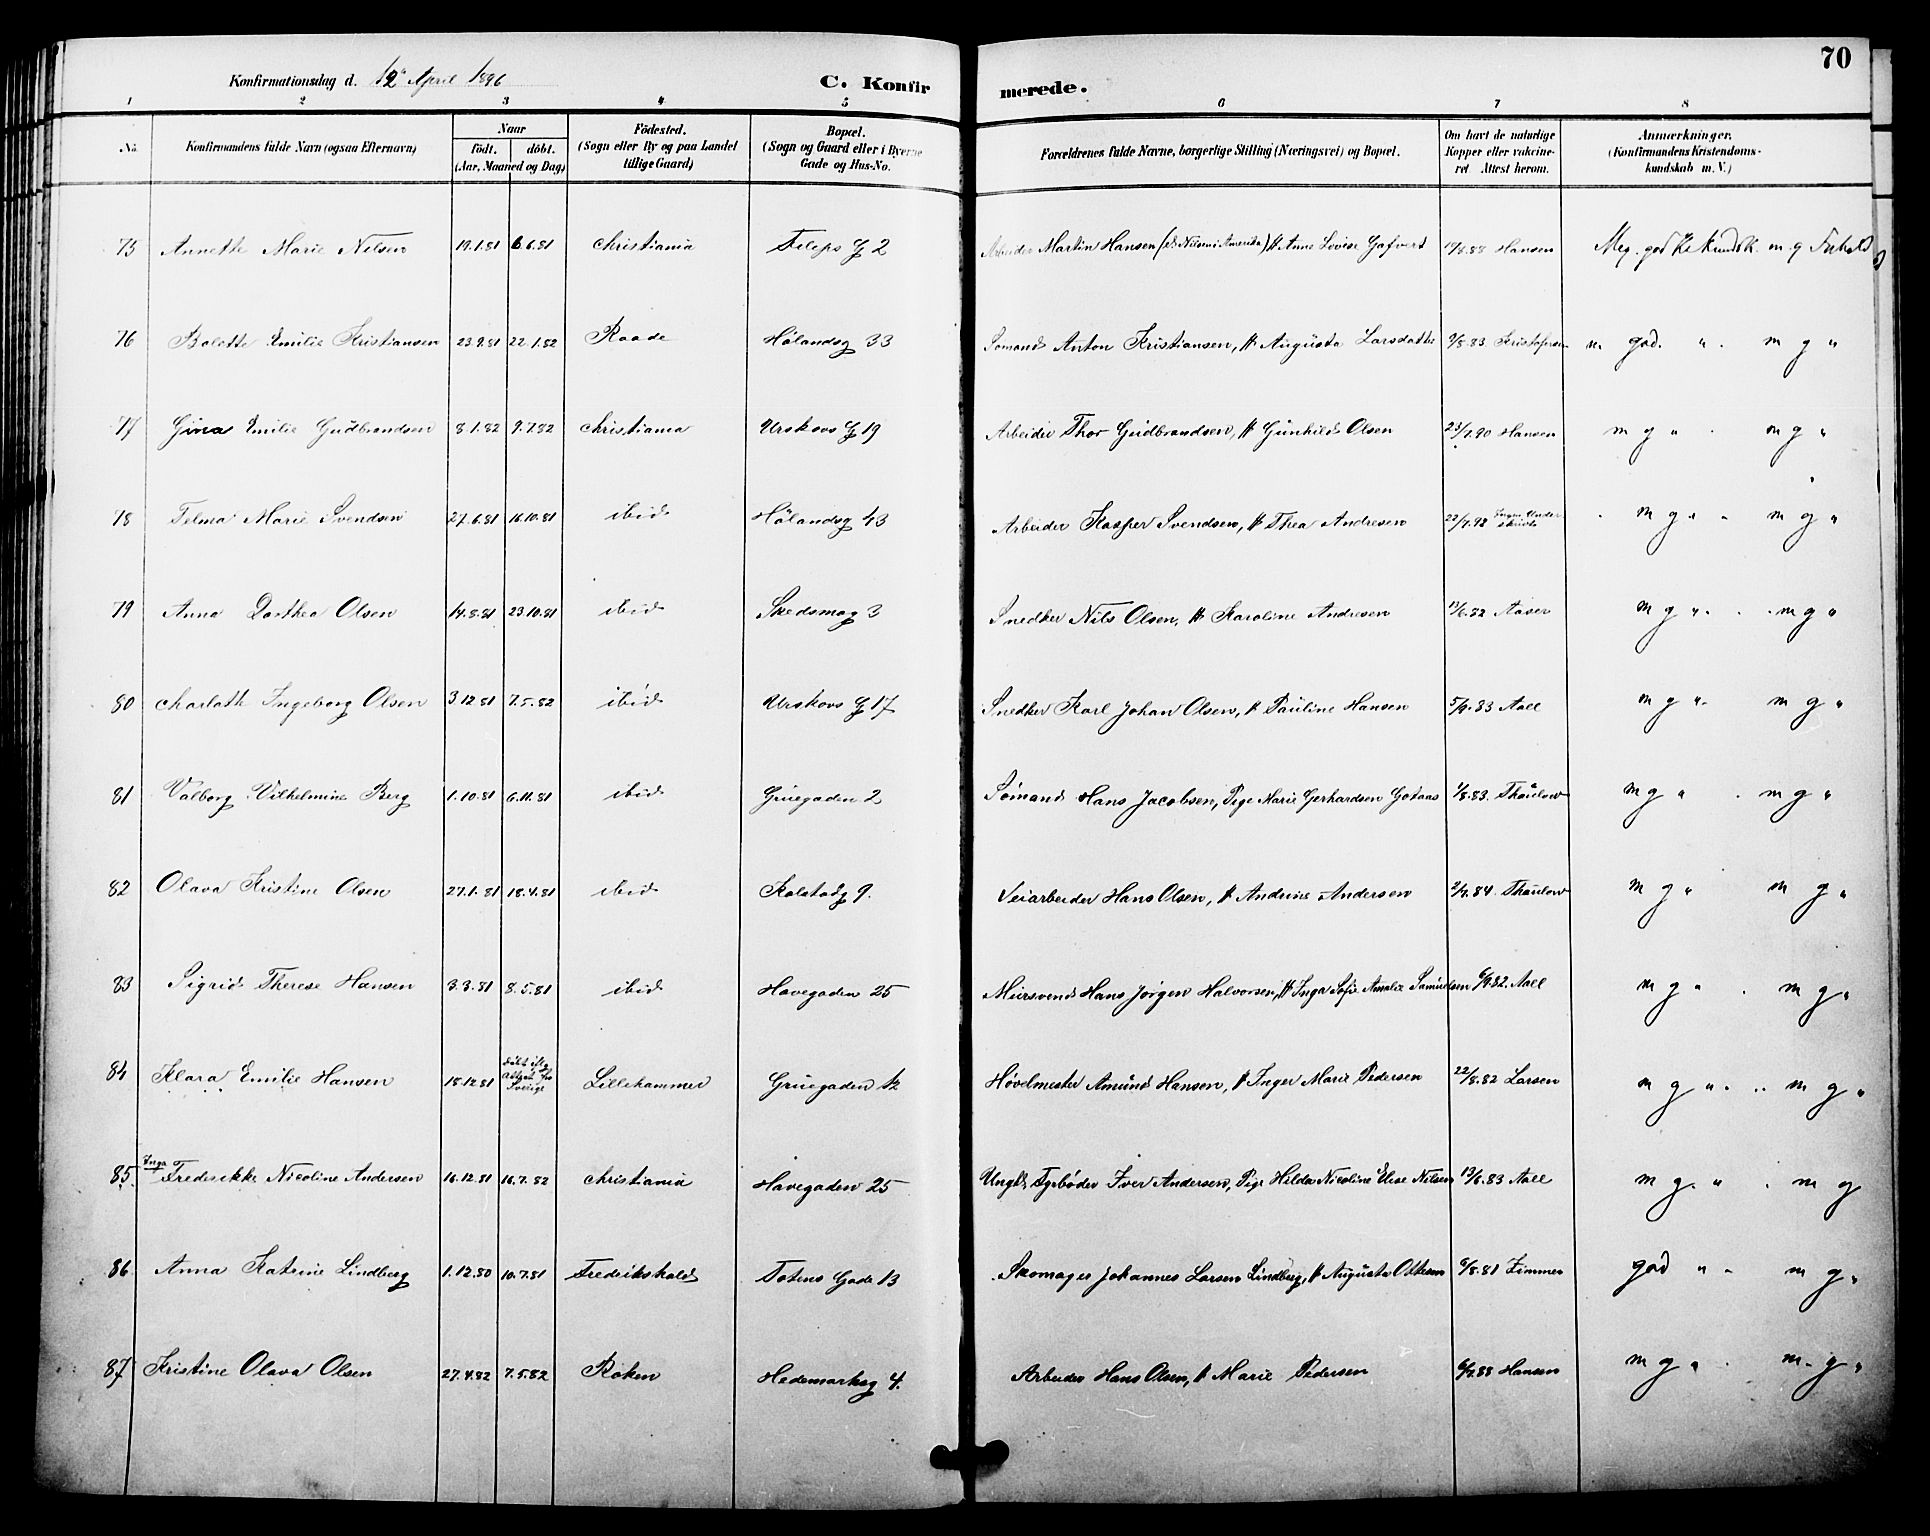 70
Konfirmationsdag d. 12te April 1896 C. Konfirmerede.
1 2 3 4 5 6 7 8
No. Konfirmandens fulde Navn (ogsaa Efternavn) Naar födt. döbt. (Aar, Maaned og Dag) Födested. (Sogn eller By og paa Landet tillige Gaard) Bopæl. (Sogn og Gaard eller i Byerne Gade og Hus-No. Forældrenes fulde Navne, borgerlige Stilling (Næringsvei) og Bopæl. Om havt de naturlige Kopper eller vaccineret Attest herom. Anmærkninger. (Konfirmandens Kristendomskundskab m. V.)
75 Annette Marie Nilsen 19.1.81 6.6.81 Christiania Fileps G 2 Arbeider Martin Hansen (ell. Nilsen i Amerika) H. Anne Lovise Gafvert 19/8.88 Hansen Meg. god Kr. Kundsk. m. g Forhold
76 Bolette Emilie Kristiansen 23.9.81 22.1.82 Raade Hölandsg 33 Sömand Anton Kristiansen, H Augusta Larsdatter 9/8.83 Kristofersen m. god. " . m g "
77 Gina Emilie Gudbrandsen 8.1.82 9.7.82 Christiania Urskovs G 19 Arbeider Thor Gudbrandsen, H Gunhild Olsen 23/7.90 Hansen m g " . m g "
78 Telma Marie Svendsen 27.6.81 16.10.81 ibid Hölandsg 43 Arbeider Kasper Svendsen, H Thea Andresen 22/7.92 Ingen Underskrift m g " " m g "
79 Anna Dorthea Olsen 14.8.81 23.10.81 ibid Skedsmog 3 Snedker Nils Olsen, H Karoline Andresen 17/6.82 Aaser m g " . . m g "
80 Charloth Ingeborg Olsen 3.12.81 7.5.82 ibid Urskovs G 17 Snedker Karl Johan Olsen, H Pauline Hansen 5/9.83 Aall m g ". m g "
81 Valborg Vilhelmine Berg 1.10.81 6.11.81 ibid Gruegaden 2 Sömand Hans Jacobsen, Pige Marie Gerhardsen Gotaas 1/8.83. Thaulow m g " . m g "
82 Olava Kristine Olsen 27.1.81 18.4.81 ibid Kolstadg 9. Veiarbeider Hans Olsen, H Andrine Andersen 2/9.84. Thaulow m g " m g "
83 Sigrid Therese Hansen 3.3.81 8.5.81 ibid Havegaden 25 Mursvend Hans Jörgen Halvorsen, H Inga Sofie Amalie Samuelsen 6/9.82. Aall m g " . m g "
84 Klara Emilie Hansen 18.12.81 döbt iflg Attest fra Sverige Lillehammer Gruegaden Høvelmester Amund Hansen, H Inger Marie Pedersen 22/8.82 Larsen m g " . .. m g "
85 Inga Frederikke Nicoline Andersen 16.12.81 16.7.82 Christiania Havegaden 25 Ungk. Fyrböder Iver Andersen, Pige Hilda Nicoline Elise Nilsen 13/6.83 Aall m g. " . m g
86 Anna Katrine Lindberg 1.12.80 10.7.81 Fredrikshald Totens Gade 13 Skomager Johannes Larsen Lindberg, H Augusta Ottesen 6/8.81 Zimmer god " " m g "
87 Kristine Olava Olsen 27.4.82 7.5.82 Röken Hedemarksg 4. Arbeider Hans Olsen, H Marie Pedersen 6/9.88 Hansen m g " . m. g "